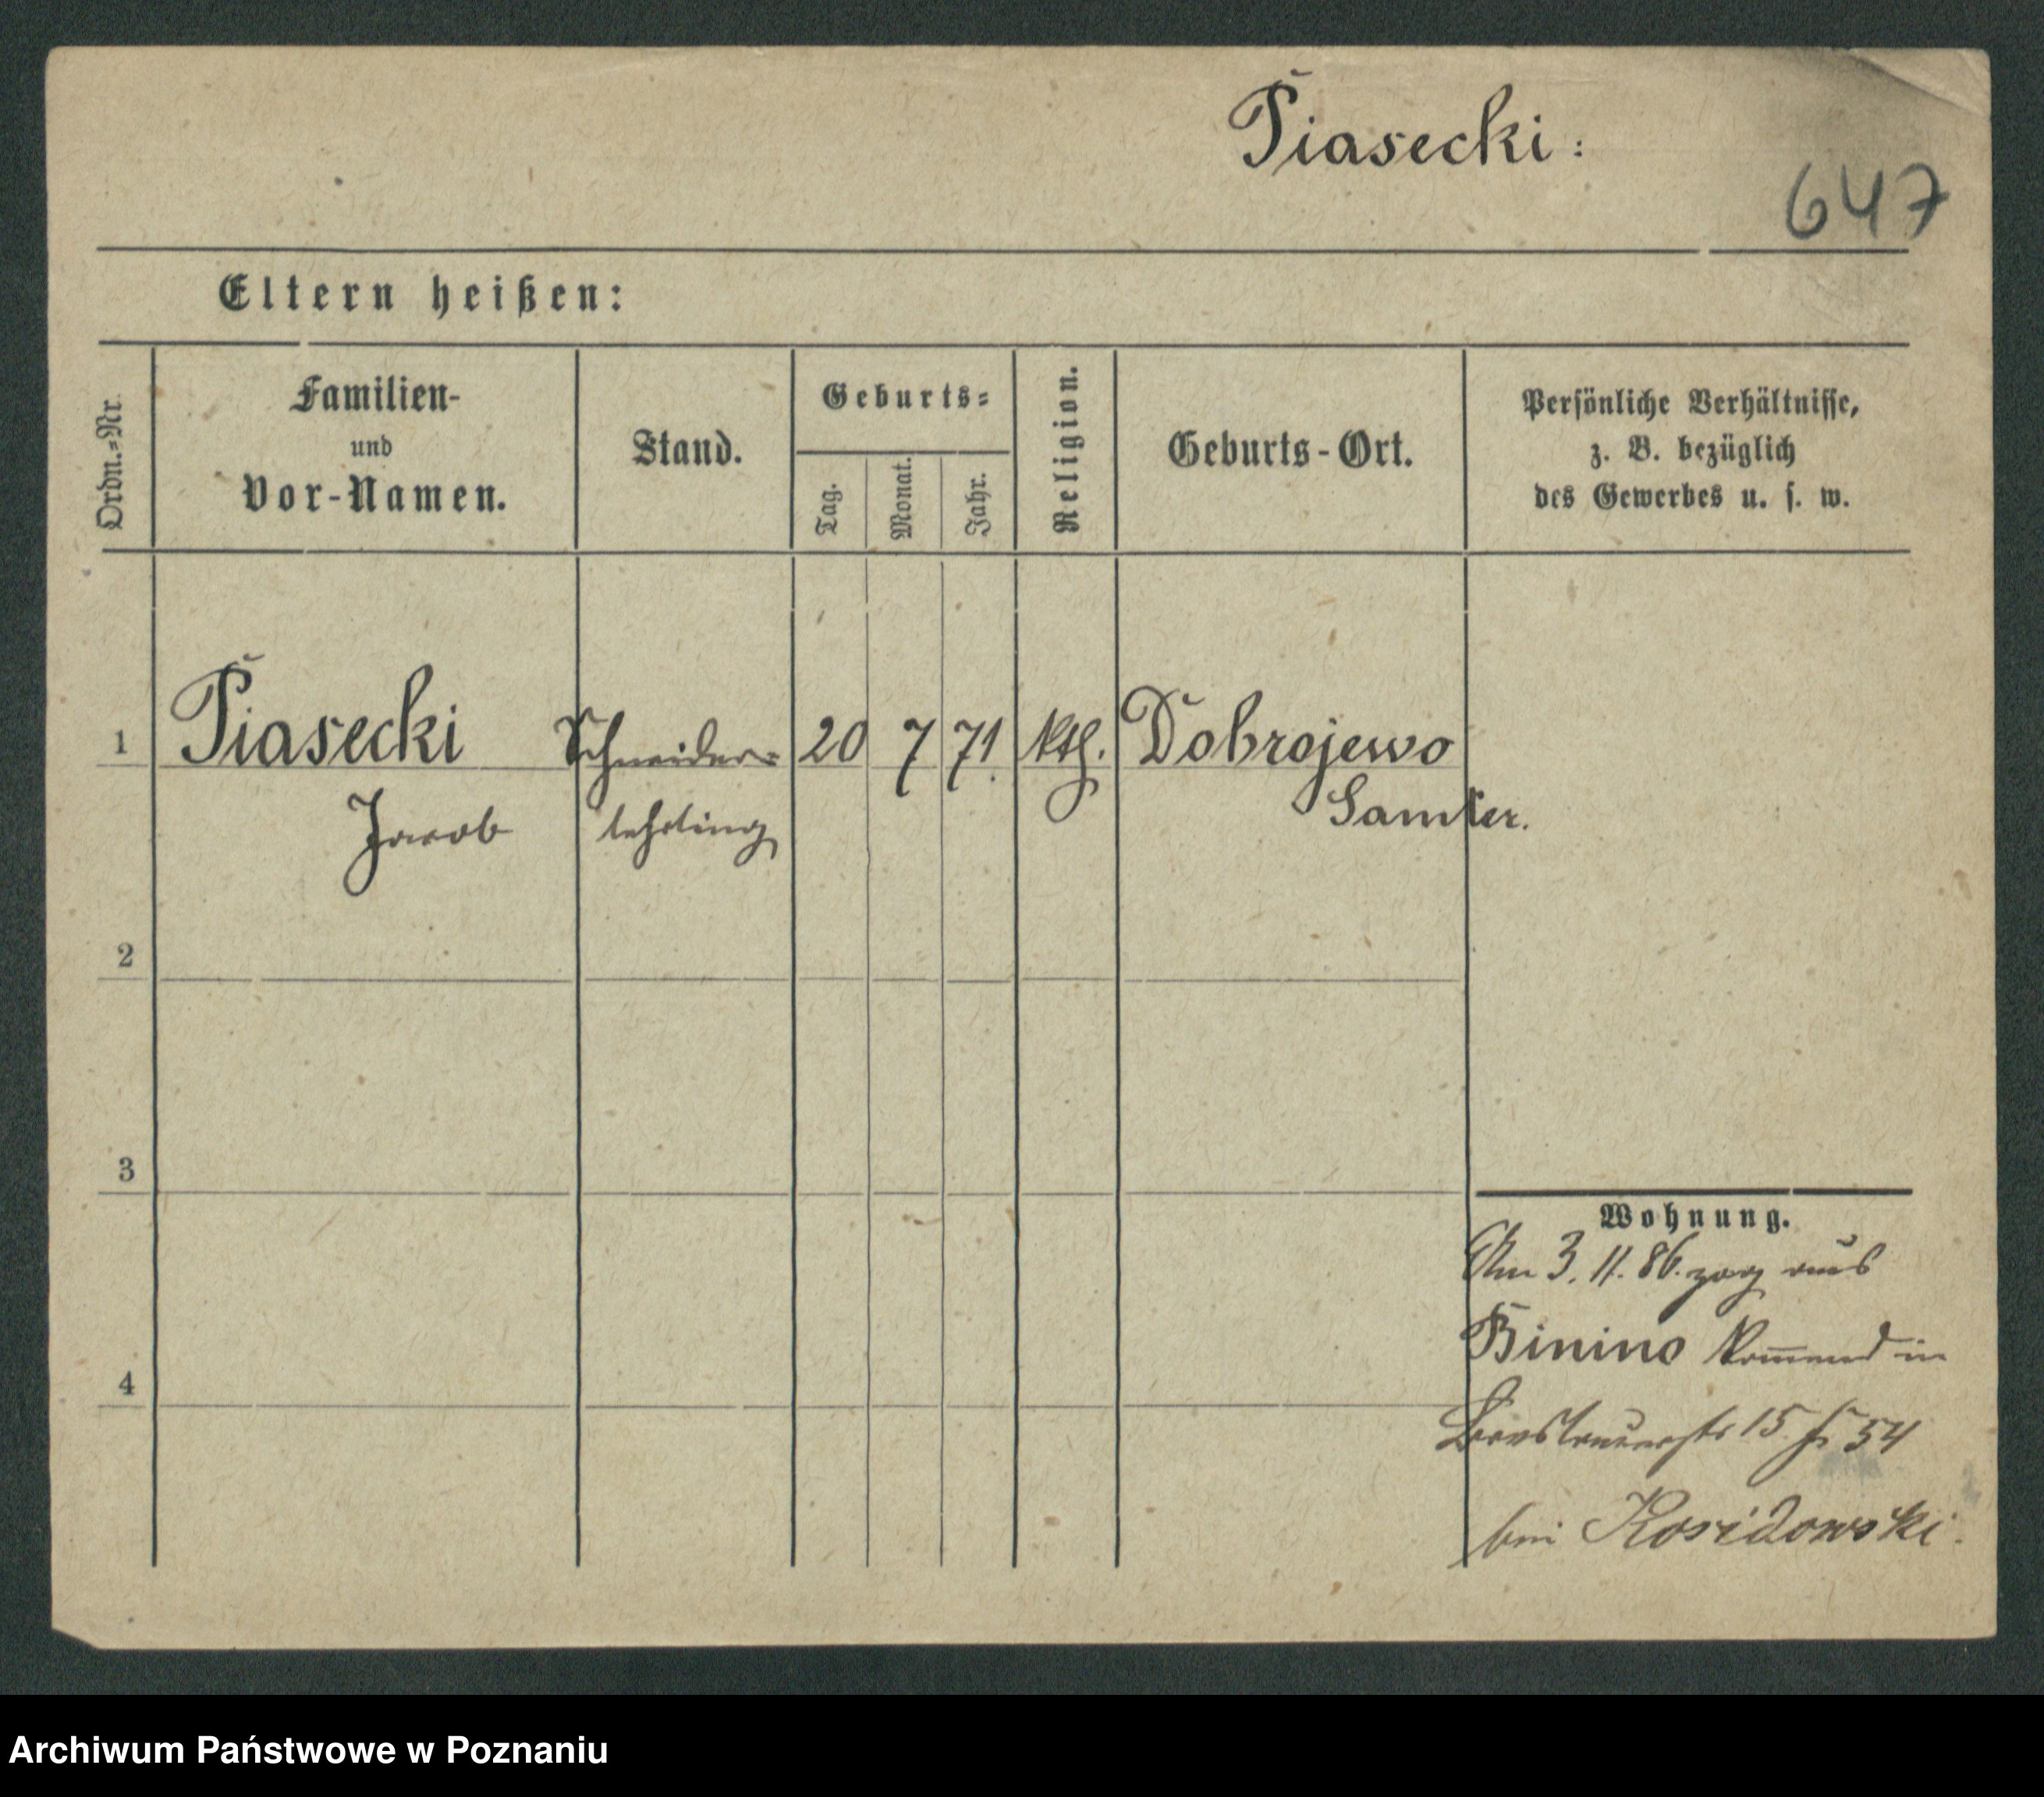 Piasecki:
647
Eltern heißen:
Ordn.=Nr.
Familien-
und
Vor-Namen.
Stand.
Geburts=
Tag.
Monat.
Jahr.
Religion.
Geburts-Ort.
Persönliche Verhältnisse,
z. B. bezüglich
des Gewerbes u. s. w.
1 Piasecki Schneider= 20 7 71. kth. Dobrojewo
Jacob lehrling Samter.
2
3
4
Wohnung.
Am 3. 11. 86. zog aus
Binino kommend in
15 54
bei Kosidowski.
Archiwum Państwowe w Poznaniu